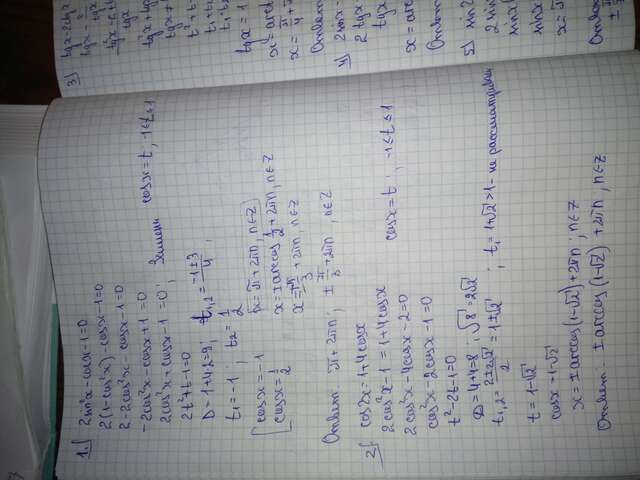 1.
2sin²x - cosx - 1 = 0
2(1 - cos²x) - cosx - 1 = 0
2 - 2cos²x - cosx - 1 = 0
-2cos²x - cosx + 1 = 0
2cos²x + cosx - 1 = 0; Замена cosx = t, -1 ≤ t ≤ 1
2t² + t - 1 = 0
D = 1 + 4·2 = 9; t₁,₂ = (-1 ± 3)/4;
t₁ = -1; t₂ = 1/2
[cosx = -1 x = π + 2πn, n∈Z
[cosx = 1/2 x = ± arccos 1/2 + 2πn, n∈Z
x = ± π/3 + 2πn, n∈Z
Ответ: π + 2πn; ± π/3 + 2πn, n∈Z
2.
cos2x = 1 + 4cosx
2cos²x - 1 = 1 + 4cosx
cosx = t; -1 ≤ t ≤ 1
2cos²x - 4cosx - 2 = 0
cos²x - 2cosx - 1 = 0
t² - 2t - 1 = 0
D = 4 + 4 = 8; √8 = 2√2
t₁,₂ = (2 ± 2√2)/2 = 1 ± √2; t₁ = 1 + √2 > 1 - не рассматриваем
t = 1 - √2
cosx = 1 - √2
x = ± arccos(1 - √2) + 2πn; n∈Z
Ответ: ± arccos(1 - √2) + 2πn, n∈Z
3)
tgx - 2ctgx
tgx -
tgx
tgx
tgx = 1
4)
2sinx -
2tgx -
tgx
5)
sin2
2sin
sinx
sinx